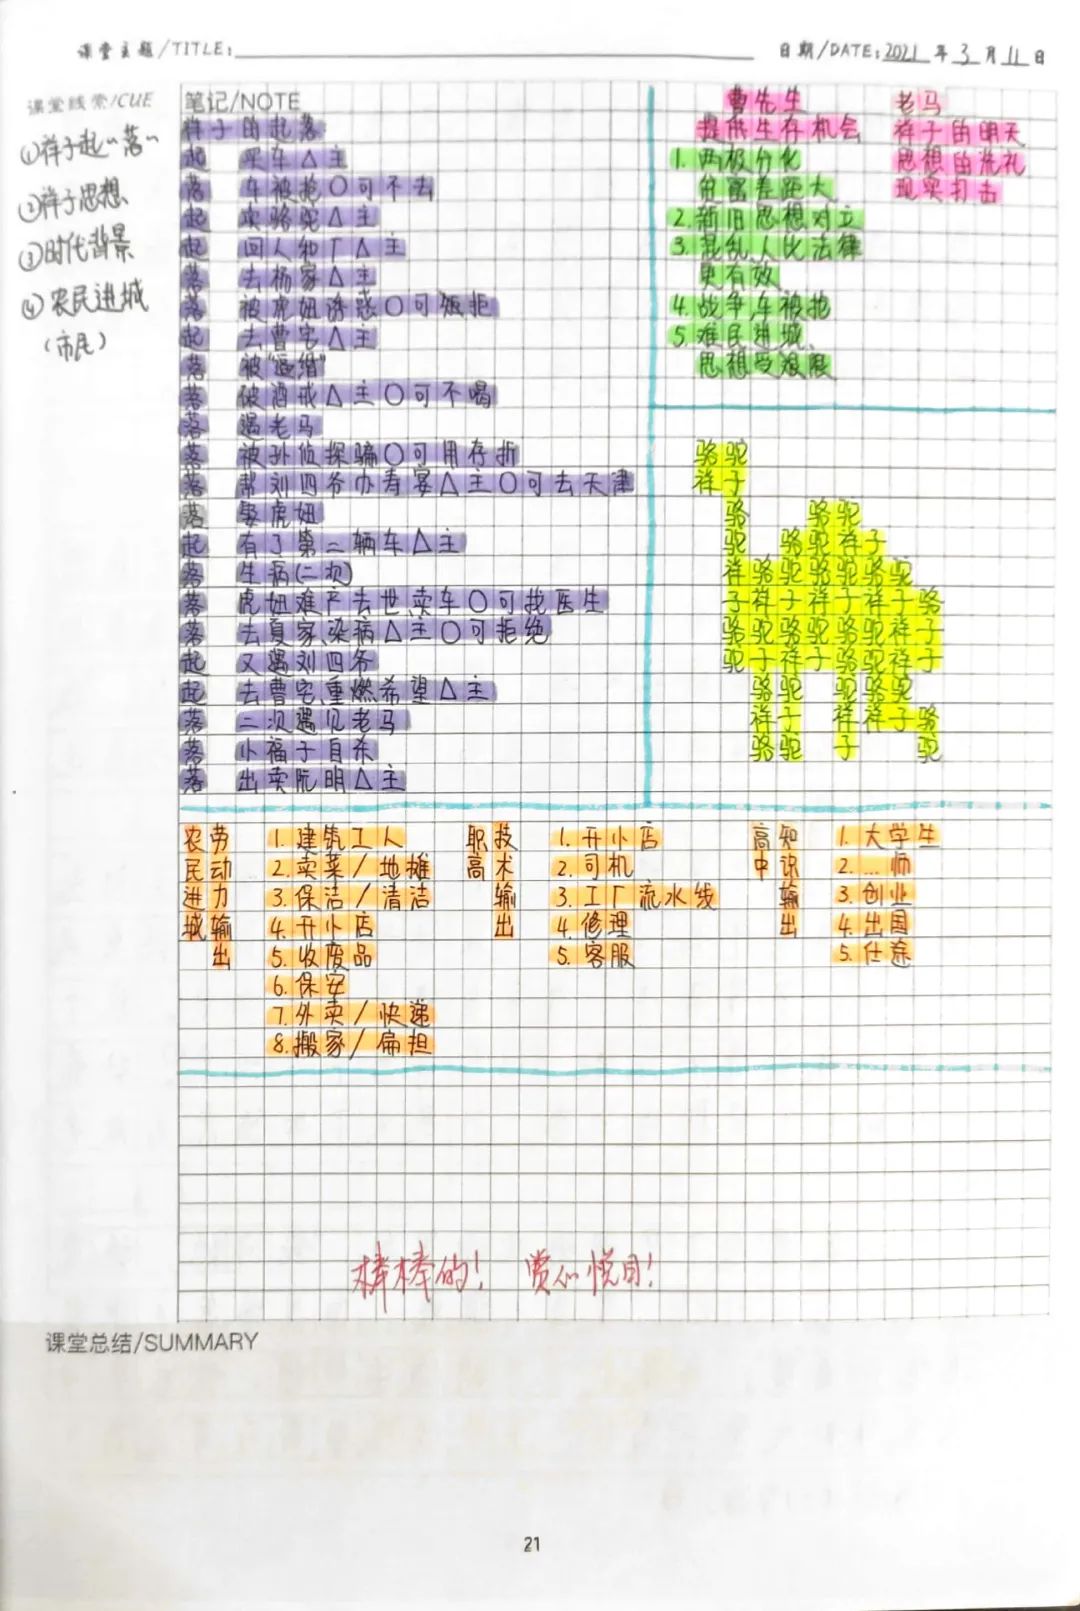 课堂主题/TITLE:
日期/DATE: 2021 年 3 月 11 日
课堂线索/CUE
①祥子起“落”
②祥子思想
③时代背景
④农民进城
(市民)
笔记/NOTE
祥子的起落
起 买车△主
落 车被抢〇可不去
起 卖骆驼△主
起 回人和厂△主
落 去杨家△主
落 被虎妞诱惑〇可婉拒
起 去曹宅△主
落 被"逼婚"
落 破酒戒△主〇可不喝
落 遇老马
落 被孙侦探骗〇可用存折
落 帮刘四爷办寿宴△主〇可去天津
落 娶虎妞
起 有了第二辆车△主
落 生病(二次)
落 虎妞难产去世、卖车〇可找医生
落 去夏家、染病△主〇可拒绝
起 又遇刘四爷
起 去曹宅重燃希望△主
落 二次遇见老马
落 小福子自杀
落 出卖阮明△主
曹先生
提供生存机会
老马
祥子的明天
思想的洗礼
现实打击
1. 两极分化
贫富差距大
2. 新旧思想对立
3. 混乱,人比法律
更有效
4. 战争,车被抢
5. 难民进城、
思想受限
骆驼
祥子
骆 骆驼
驼 骆驼祥子
祥骆驼骆驼骆驼
子祥子祥子祥子骆
骆驼骆驼骆驼祥子
驼子祥子骆驼祥子
骆驼 驼骆驼
祥子 祥祥子骆
骆驼 子 驼
农民进城
劳动力输出
1. 建筑工人
2. 卖菜/地摊
3. 保洁/清洁
4. 开小店
5. 收废品
6. 保安
7. 外卖/快递
8. 搬家/扁担
职高
技术输出
1. 开小店
2. 司机
3. 工厂流水线
4. 修理
5. 客服
高中
知识输出
1. 大学生
2. …师
3. 创业
4. 出国
5. 仕途
棒棒的! 赏心悦目!
课堂总结/SUMMARY
21